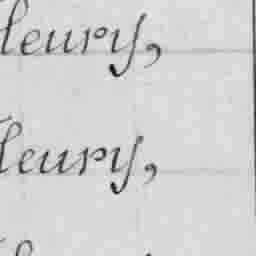 leury,
leury,